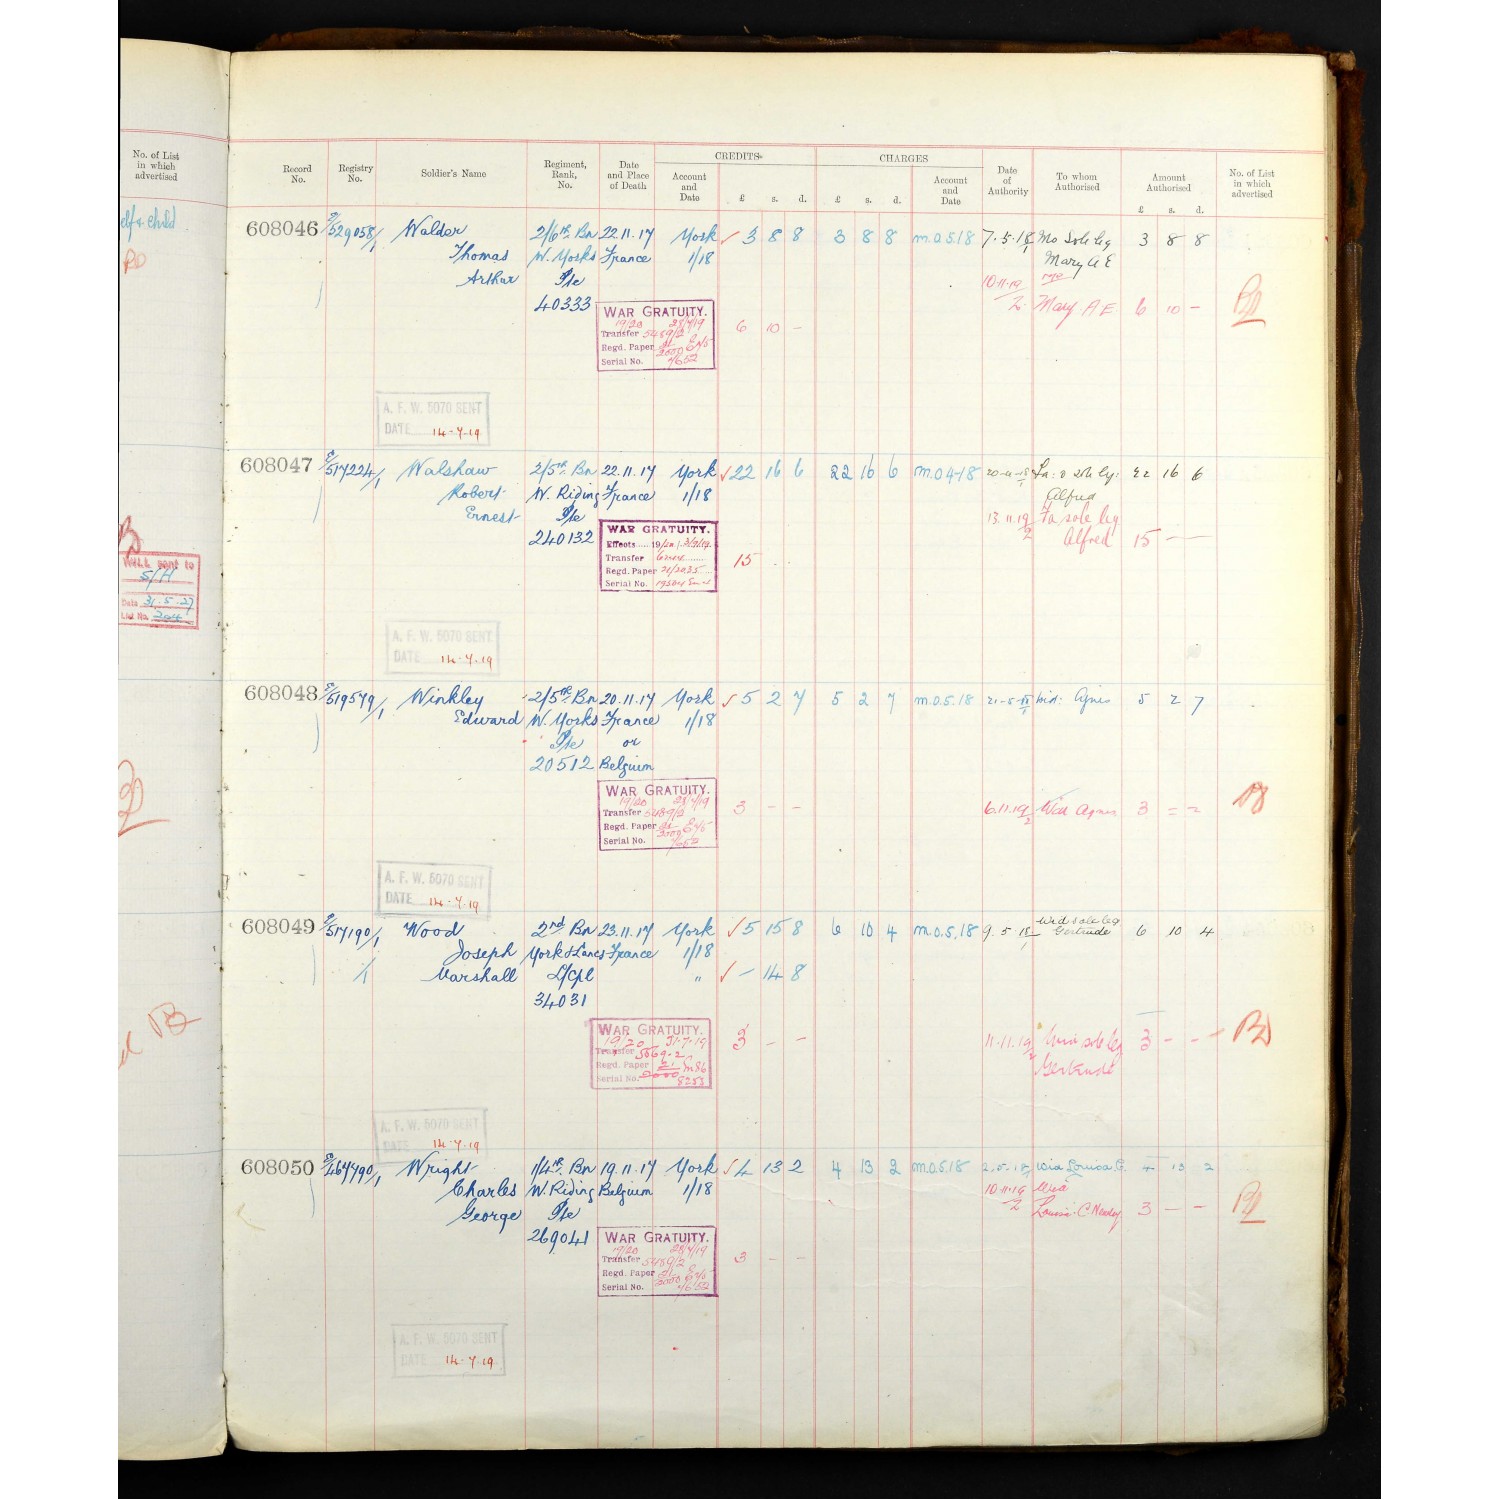 No. of List
in which
advertised
self & child
WILL sent to
S/H
Date 31.5.27
List No.
CREDITS
CHARGES
Record
No.
Registry
No.
Soldier's Name
Regiment,
Rank,
No.
Date
and Place
of Death
Account
and
Date
£ s. d.
£ s. d.
Account
and
Date
Date
of
Authority
To whom
Authorised
Amount
Authorised
£ s. d.
No. of List
in which
advertised
608046 E/529058/1 Walder 2/6th Bn 22.11.17 York 3 8 8 3 8 8 M.O.5.18 7.5.18/1 Mo Sole leg 3 8 8
Thomas W. Yorks France 1/18 Mary A E
Arthur Pte 10.11.19/2 Mo
40333 Mary A E 6 10 –
WAR GRATUITY.
19/20 28/7/19
Transfer 5489/2
Regd. Paper 21/2000 E4/5
Serial No. 7652
6 10 –
A. F. W. 5070 SENT
DATE 14-7-19
608047 E/517224/1 Walshaw 2/5th Bn 22.11.17 York 22 16 6 22 16 6 M.O.4-18 Fa: & sole leg: 22 16 6
Robert W. Riding France 1/18 Alfred
Ernest Pte 13.11.19/2 Fa sole leg
240132 Alfred 15 – –
WAR GRATUITY.
Effects 19/20 3/9/19
Transfer
Regd. Paper 21/2035
Serial No.
15
A. F. W. 5070 SENT
DATE 14-7-19
608048 E/519579/1 Winkley 2/5th Bn 20.11.17 York 5 2 7 5 2 7 M.O.5.18 21-5-18/1 Wid: Agnes 5 2 7
Edward W. Yorks France 1/18
Pte or
20512 Belgium
WAR GRATUITY.
19/20 28/7/19
Transfer 5489/2
Regd. Paper 21/2000 E4/5
Serial No. 7652
3 – – 6.11.19/2 Wid Agnes 3 – –
A. F. W. 5070 SENT
DATE 14-7-19
608049 E/517190/1 Wood 2nd Bn 23.11.17 York 5 15 8 6 10 4 M.O.5.18 9.5.18/1 Wid sole leg Gertrude 6 10 4
Joseph York & Lancs France 1/18
Marshall L/Cpl " – 14 8
34031
WAR GRATUITY.
19/20 31-7-19
Transfer 5569-2
Regd. Paper 21/2000 M86
Serial No. 8253
3 – – 11.11.19/2 Wid sole leg 3 – –
Gertrude
A. F. W. 5070 SENT
DATE 14-7-19
608050 E/467790/1 Wright 1/4th Bn 19.11.17 York 4 13 2 4 13 2 M.O.5.18 2.5.18/1 Wid Louisa C. 4 13 2
Charles W. Riding Belgium 1/18 10.11.19/2 Wid
George Pte Louisa C 3 – –
269041
WAR GRATUITY.
19/20 28/7/19
Transfer 5489/2
Regd. Paper 21/2000 E4/5
Serial No. 7652
3 – –
A. F. W. 5070 SENT
DATE 14-7-19